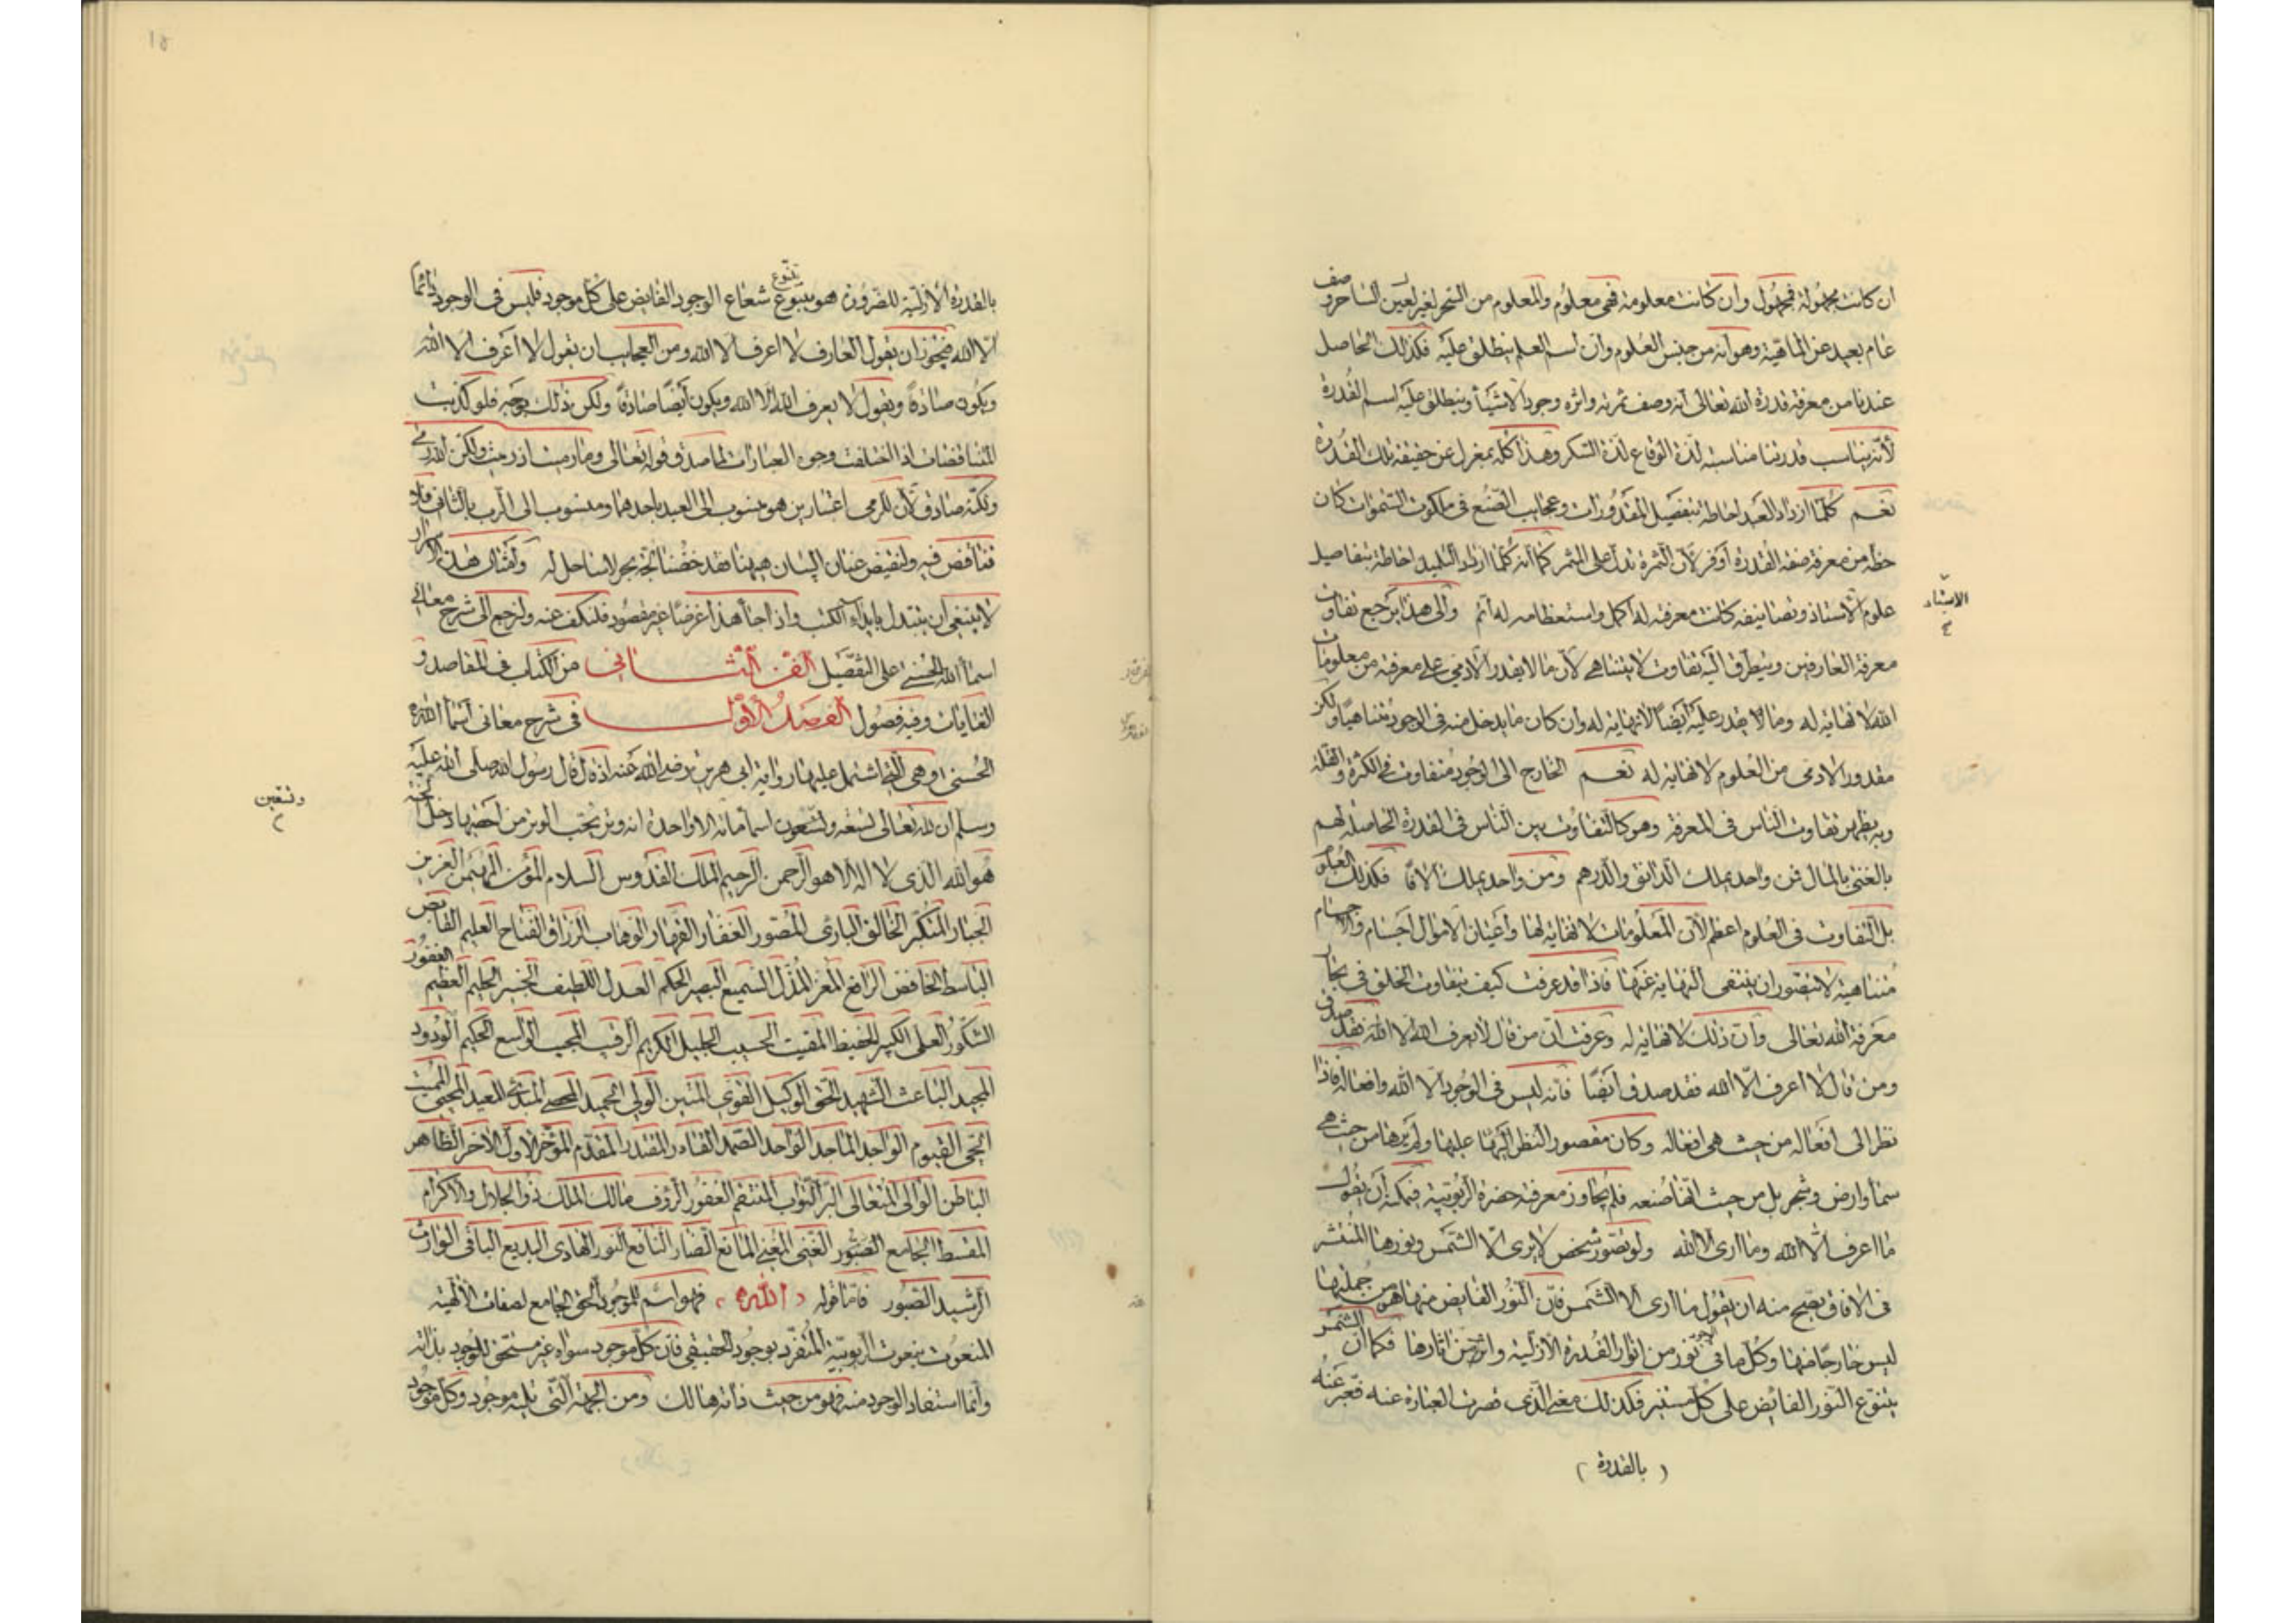 ان كانت مجهولة فمجهول وان كانت معلومة فهى معلوم والمعلوم من السحر لغير لعين الساحر وصف
عام بعيد عن الماهية وهو انه من جنس العلوم وان اسم العلم ينطلق عليه فكذلك الحاصل
عندنا من معرفة قدرة الله تعالى انه وصف ثمرته واثره وجود الاشيأ وينطلق عليه اسم القدرة
لأنه يناسب قدرتنا مناسبة لذة الوقاع لذة السكر وهذا كله بمعزل عن حقيقة تلك القدرة
نعم كلما ازداد العبد احاطة بتفصيل المقدورات وعجايب الصنع فى ملكوت السموات كان
حظه من معرفة صفة القدرة أوفر لأن الثمرة تدل على المثمر كما أنه كلما ازداد التلميذ احاطة بتفاصيل
علوم الاستاذ وتصانيفه كانت معرفته له اكمل واستعظامه له أتم والى هذا يرجع تفاوت
الاستاد
معرفة العارفين ويتطرق اليه تفاوت لا يتناهى لأن ما لا يقدر الآدمى على معرفته من معلومات
الله لا نهاية له وما لا يقدر عليه أيضًا لا نهاية له وان كان ما يدخل منه فى الوجود متناهيًا ولكن
مقدور الادمى من العلوم لا نهاية له نعم الخارج الى الوجود متفاوت فى الكثرة والقلة
وبه يظهر تفاوت الناس فى المعرفة وهو كالتفاوت بين الناس فى لقدرة الحاصلة لهم
بالغنى بالمال فمن واحد يملك الدانق والدرهم ومن واحد يملك الافًا فكذلك العلوم
بل التفاوت فى العلوم اعظم لأن المعلومات لا نهاية لها وأعيان الاموال أجسام والاجسام
متناهية لا يتصور ان ينتفى النهاية عنها فاذا قد عرفت كيف يتفاوت الخلق فى بحار
معرفة الله تعالى وان ذلك لا نهاية له وعرفت ان من قال لا يعرف الله الا الله فقد صدق
ومن قال لا اعرف الّا الله فقد صدق أيضًا فانه ليس فى الوجود الا الله وافعاله فاذا
نظر الى أفعاله من حيث هى افعاله وكان مقصور النظر عليها ولم يرها من حيث هى
سمأ وارض وشجر بل من حيث انها صنعه فلم يجاوز معرفته حضرة الربوبية فيمكنه أن يقول
ما اعرف الا الله وما ارى الا الله ولو تصور شخص لا يرى الّا الشمس ونورها المنتشر
فى الافاق يصح منه ان يقول ما ارى الا الشمس فان النور الفايض منها هو من جملتها
ليس خارجًا منها وكل ما فى الوجود نور من انوار القدرة الازلية واثر من اثارها فكما أن الشمس
ينبوع النور الفائض على كل مستنير فكذلك معنى الذى قصرت العبارة عنه فعبر عنه
( بالقدرة )
بالقدرة الازلية للضرورة هو ينبوع شعاع الوجود الفايض على كل موجود فليس فى الوجود دائما
الا الله فيجوز ان يقول العارف لا اعرف الا الله ومن العجايب ان يقول لا أعرف الا الله
ويكون صادقًا ويقول لا يعرف الله الا الله ويكون أيضًا صادقًا ولكن ذلك بوجه فلو كذبت
المتناقضات اذا اختلفت وجوه العبارات لما صدق قوله تعالى وما رميت اذ رميت ولكن الله رمى
ولكنه صادق لأن للرمى اعتبارين هو منسوب الى العبد باحدهما ومنسوب الى الرب بالثانى فلا
تناقض فيه ولنقبض عنان البيان هيهنا فقد خضنا لجة بحر لا ساحل له وامثال هذه الاسرار
لا ينبغى ان يبتذل بايداع الكتب واذا جأ هذا عرضًا غير مقصود فلنكف عنه ولنرجع الى شرح معانى
اسمأ الله الحسنى على التفصيل الفن الثانى من الكتاب فى المقاصد و
الغايات وفيه فصول الفصل الاول فى شرح معانى أسمأ الله
الحسنى وهى التى اشتمل عليها رواية ابى هريرة رضى الله عنه اذ قال قال رسول الله صلى الله عليه
وسلم ان لله تعالى تسعة وتسعون اسما مائة الا واحدة انه وتر يحب الوتر من احصاها دخل الجنة
وتسعين
هو الله الذى لا اله الا هو الرحمن الرحيم الملك القدوس السلام المؤمن المهيمن العزيز
الجبار المتكبر الخالق البارئ المصور الغفار القهار الوهاب الرزاق الفتاح العليم القابض
الباسط الخافض الرافع المعز المذل السميع البصير الحكم العدل اللطيف الخبير الحليم العظيم الغفور
الشكور العلى الكبير الحفيظ المقيت الحسيب الجليل الكريم الرقيب المجيب الواسع الحكيم الودود
المجيد الباعث الشهيد الحق الوكيل القوى المتين الولى الحميد المحصى المبدئ المعيد المحيى المميت
الحى القيوم الواجد الماجد الواحد الصمد القادر المقتدر المقدم المؤخر الاول الاخر الظاهر
الباطن الوالى المتعالى البر التواب المنتقم العفو الرؤف مالك الملك ذو الجلال والاكرام
المقسط الجامع الصبور الغنى المغنى المانع الضار النافع النور الهادى البديع الباقى الوارث
الرشيد الصبور فاما قوله الله فهو اسم للموجود الحق الجامع لصفات الالهية
المنعوت بنعوت الربوبية المتفرد بوجود الحقيقى فان كل موجود سواه غير مستحق للوجود بذاته
وانما استفاد الوجود منه فهو من حيث ذاته هالك ومن الجهة التى تليه موجود وكل موجود